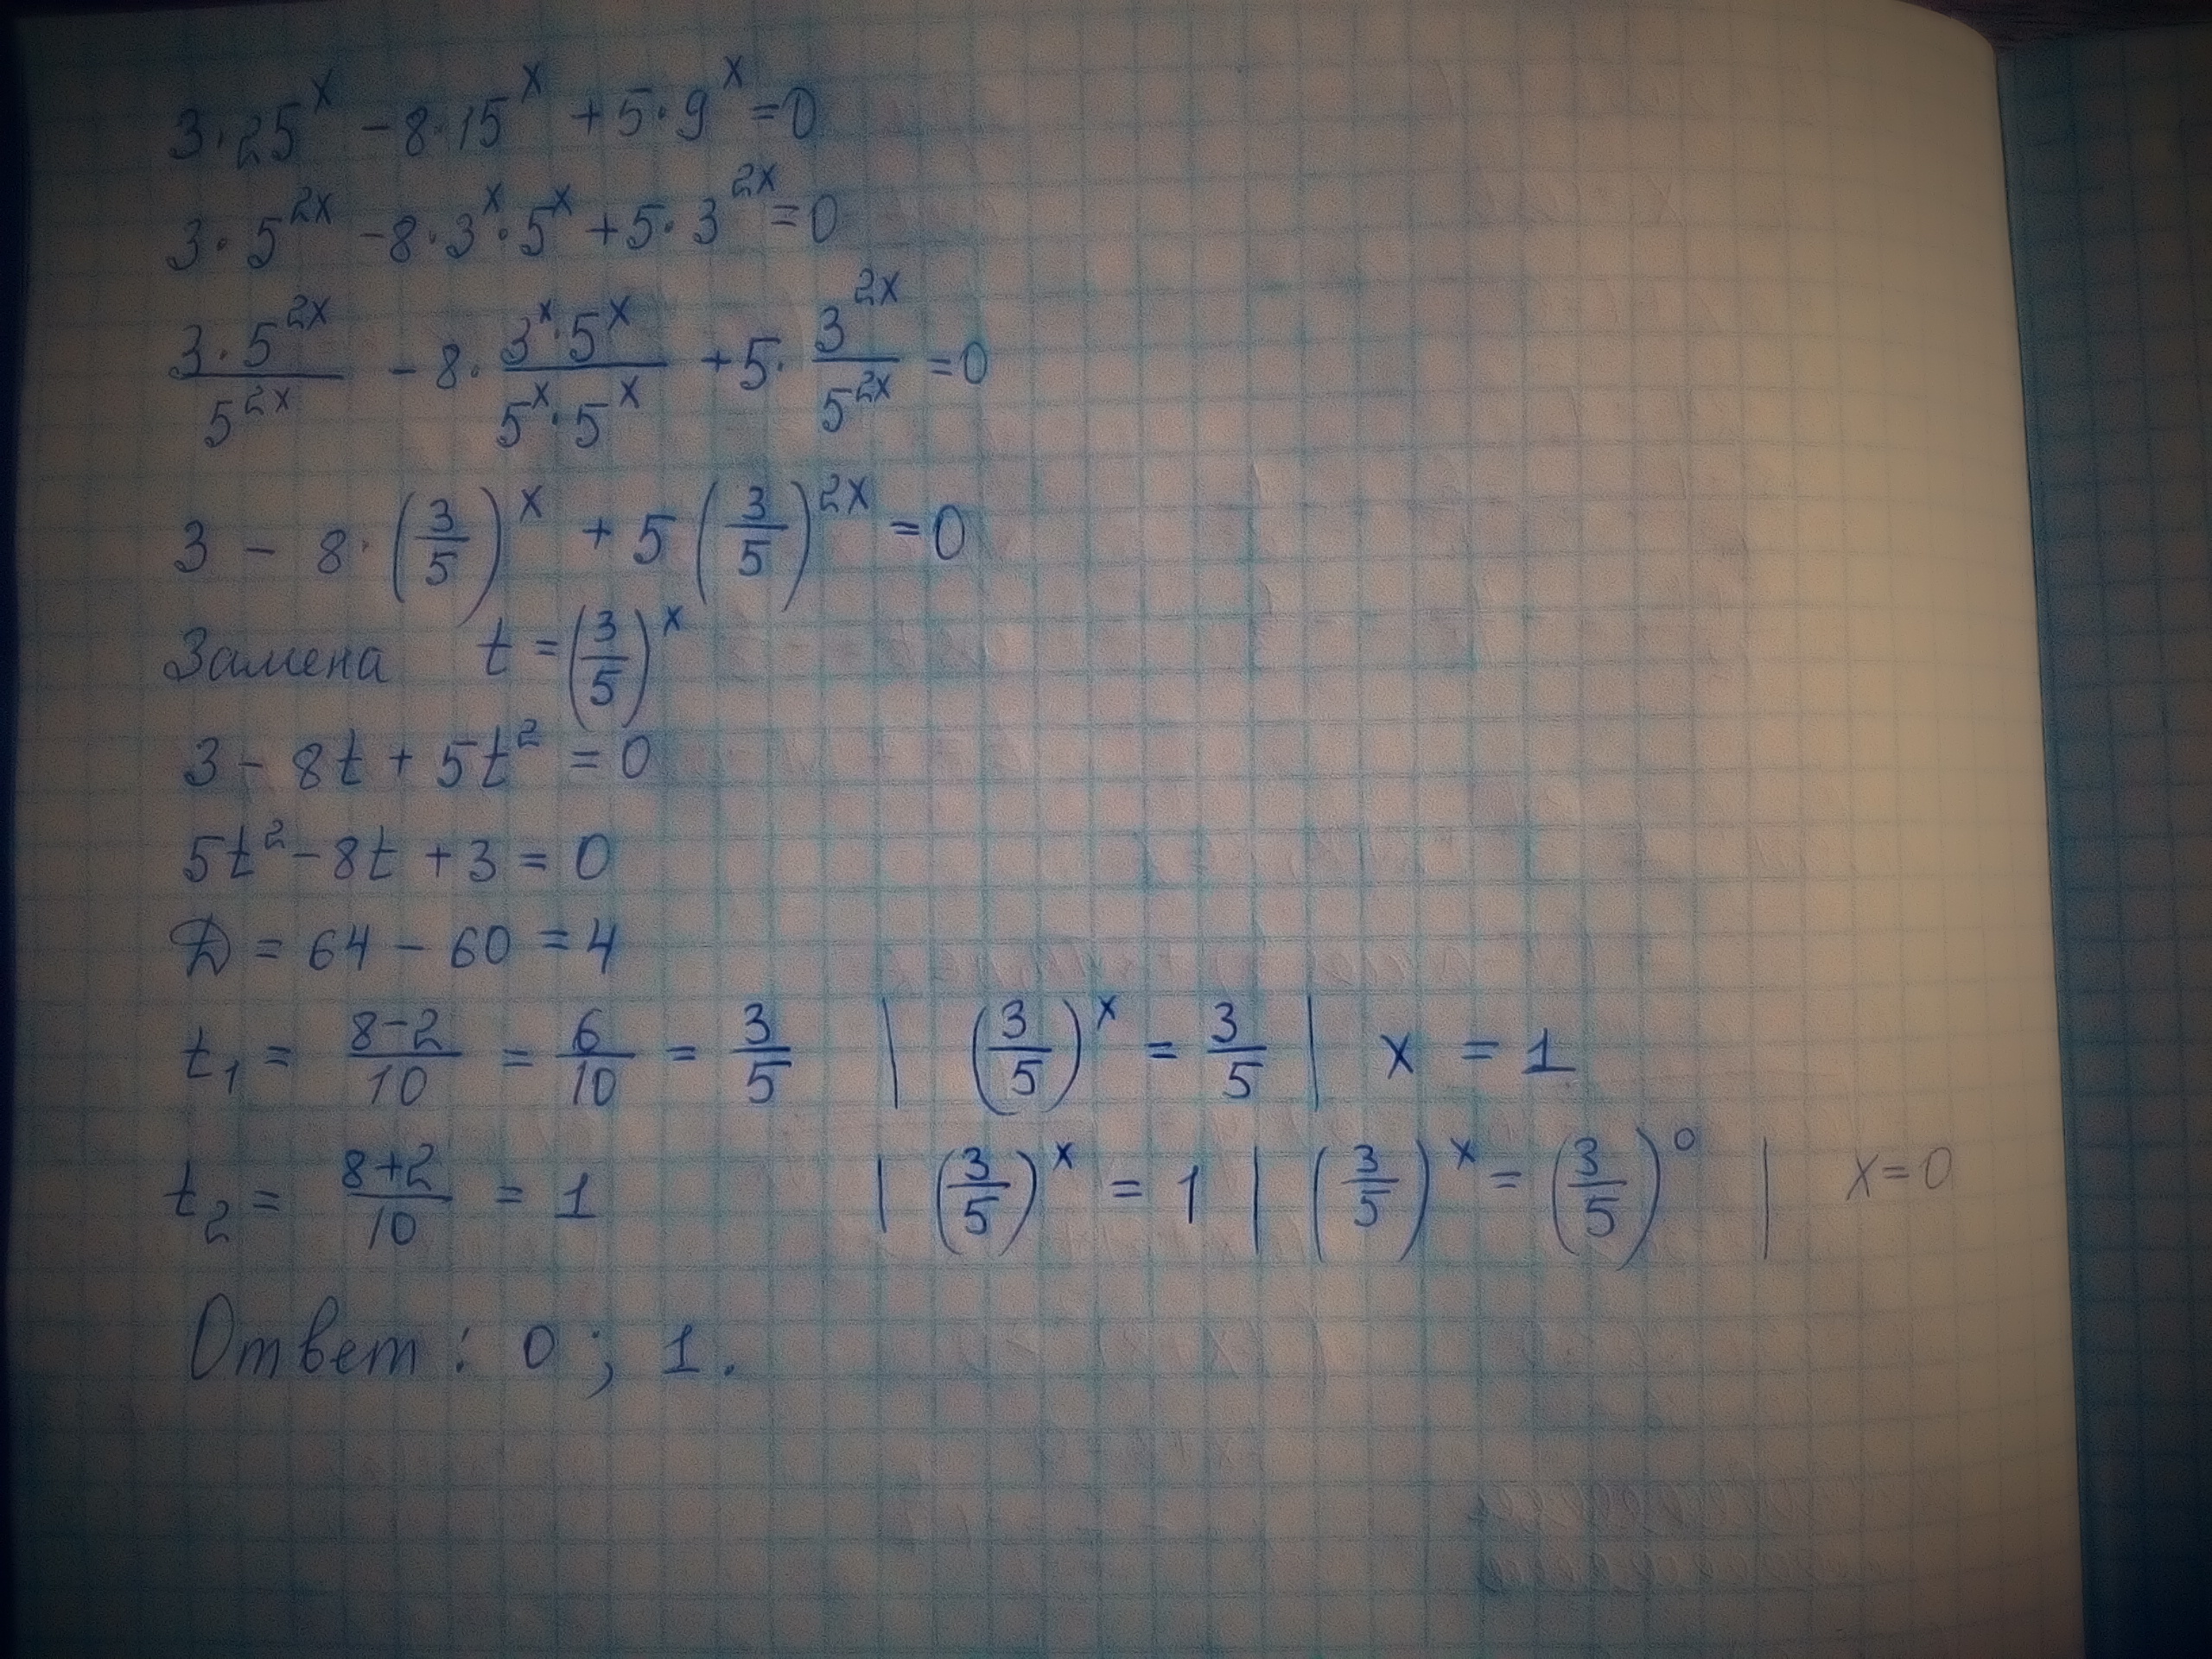 3·25^x -8·15^x +5·9^x =0
3·5^{2x} -8·3^x·5^x +5·3^{2x} =0
\frac{3·5^{2x}}{5^{2x}} - 8·\frac{3^x·5^x}{5^x·5^x} +5·\frac{3^{2x}}{5^{2x}} =0
3 - 8·(\frac{3}{5})^x + 5(\frac{3}{5})^{2x} =0
Замена t =(\frac{3}{5})^x
3 - 8t + 5t^2 = 0
5t^2 -8t +3 = 0
D = 64 - 60 = 4
t_1 = \frac{8-2}{10} = \frac{6}{10} = \frac{3}{5} | (\frac{3}{5})^x = \frac{3}{5} | x = 1
t_2 = \frac{8+2}{10} = 1 | (\frac{3}{5})^x = 1 | (\frac{3}{5})^x = (\frac{3}{5})^0 | x=0
Ответ: 0; 1.